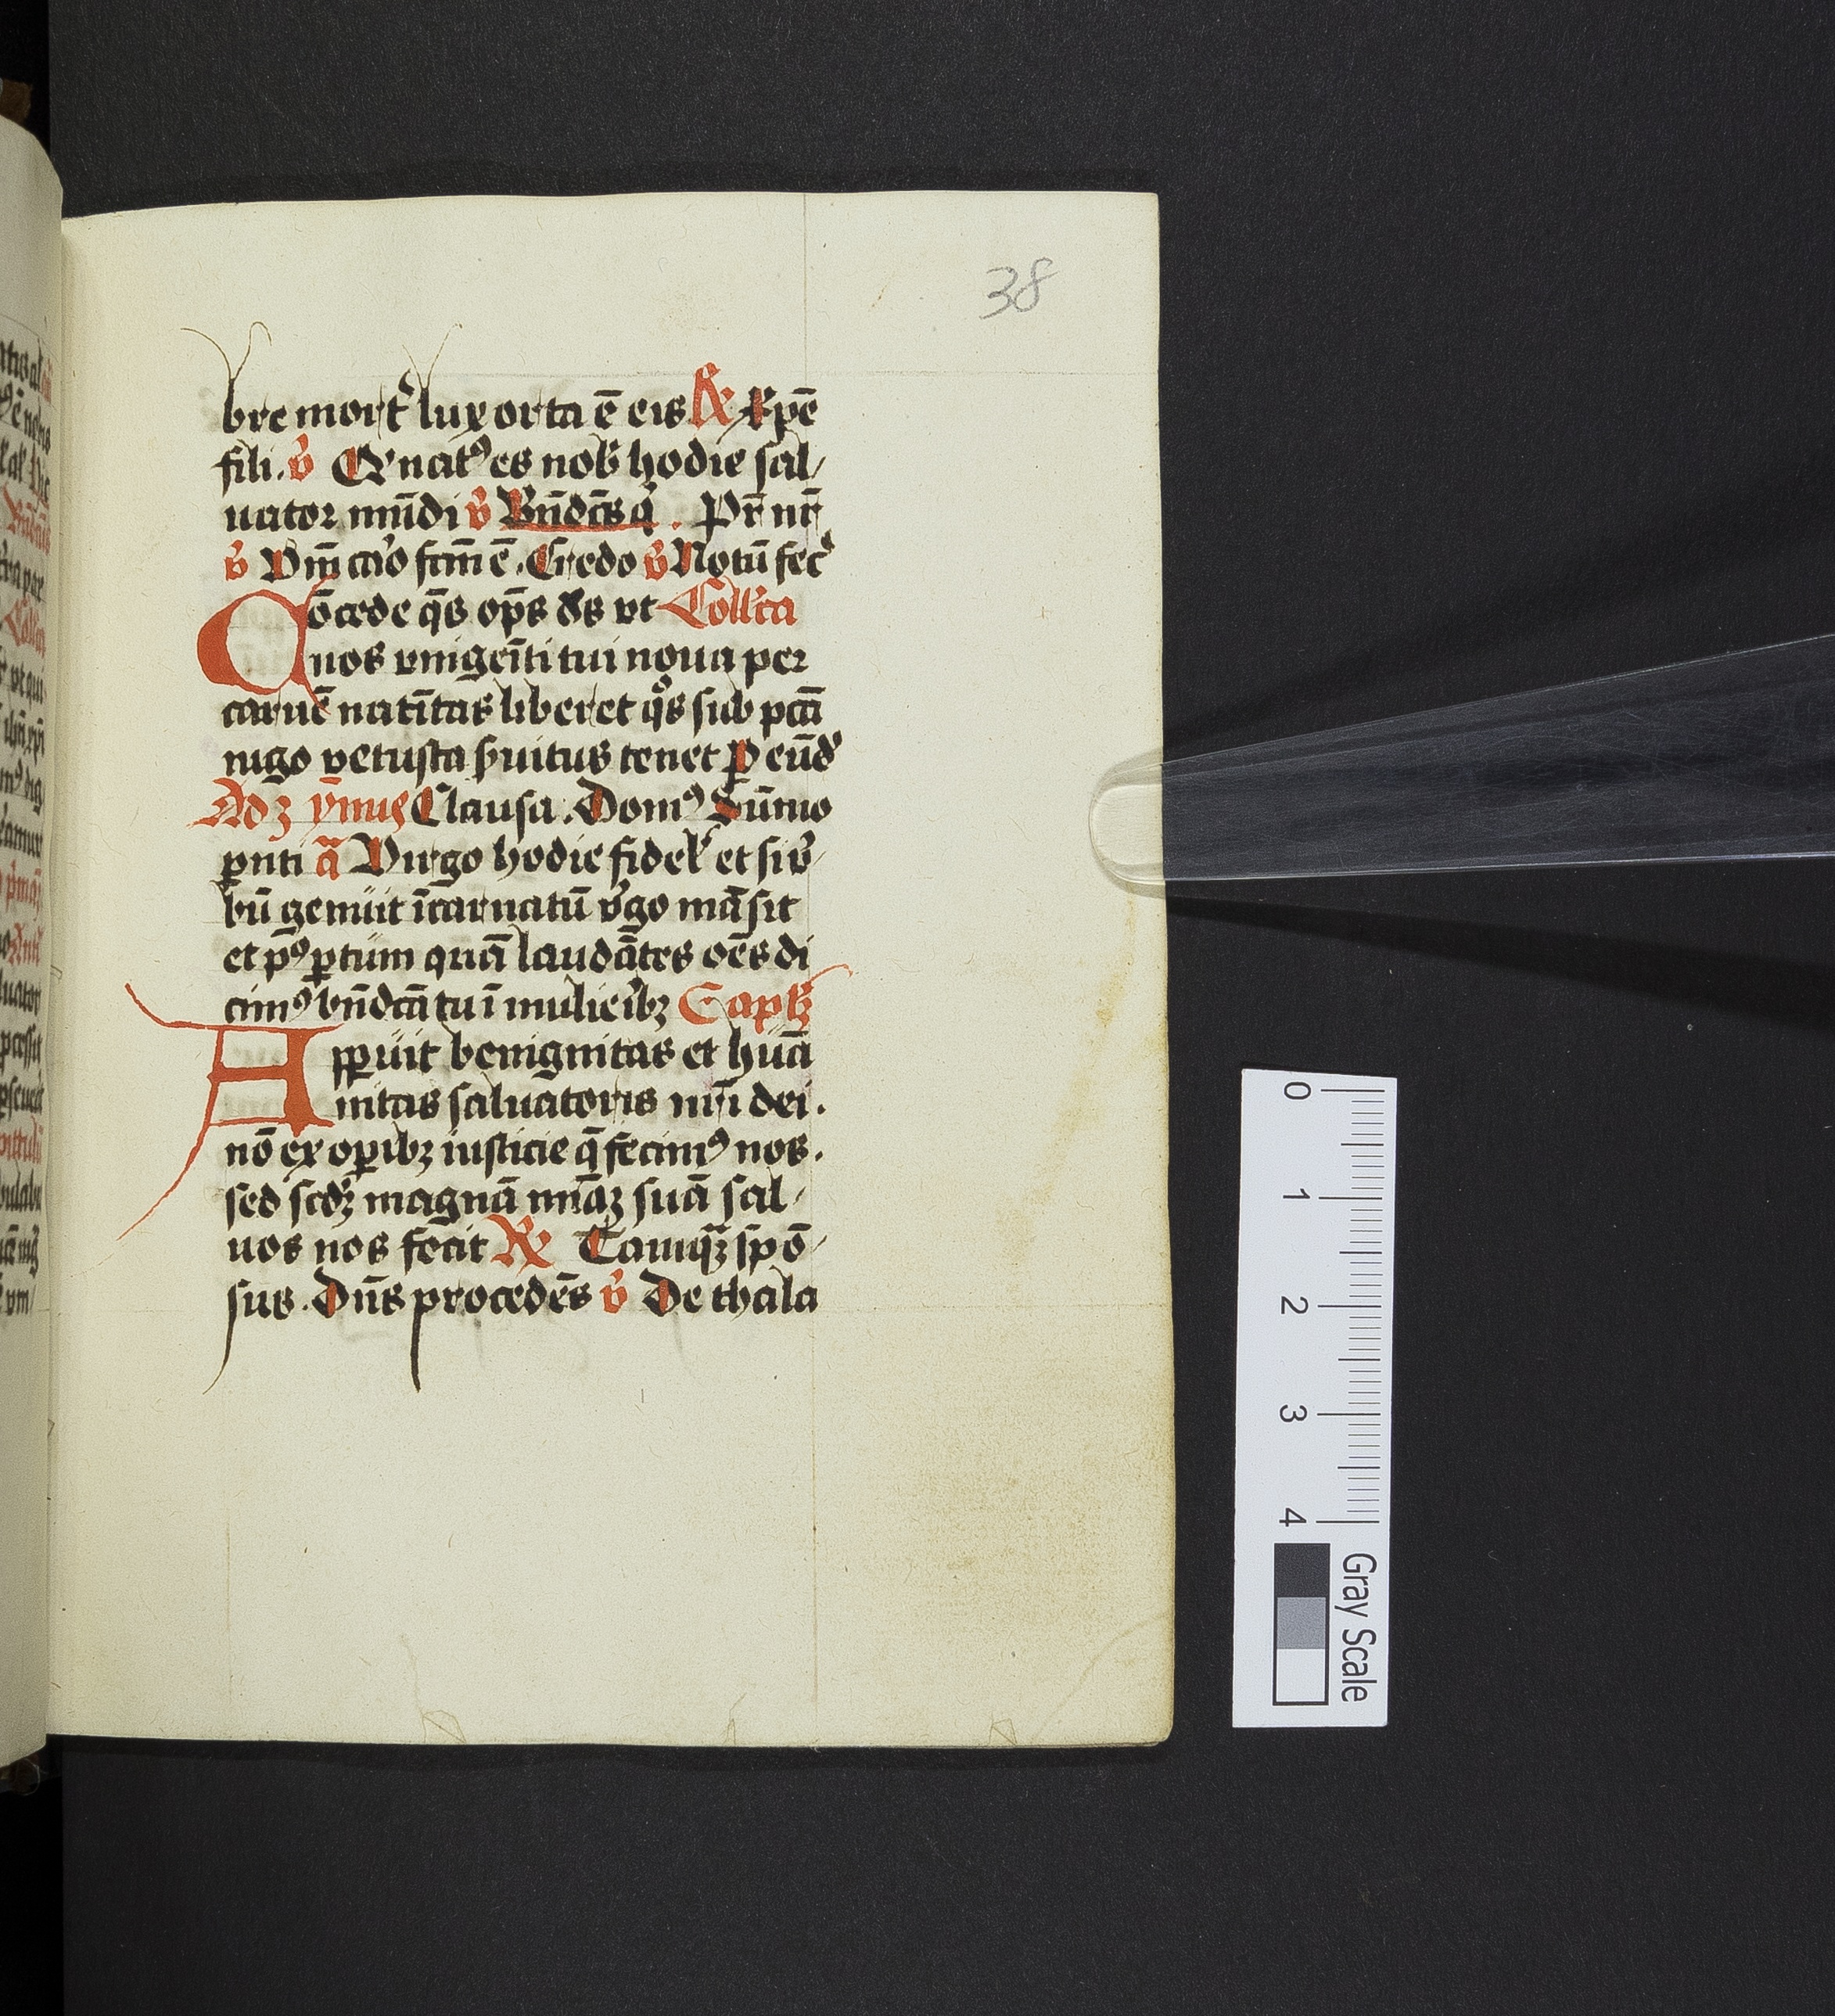 38
bre mort᷑ lux orta ē eis ℟ Xp̄e
fili. v̉ Q nat⁹ es nob̉ hodie sal/
uator mūdi v̉ Bn̄dc̄s q̉. Pr̄ nr̄
v̉ Vm̄ caro fcm̄ ē. Credo v̉ Notū fec̉
Cōcede q̄s op̄s ds vt Coll̉ta
nos vnigeīti tui noua per
carnē natītas liberet q̊s sub pcā
nigo vetusta ẜuitus tenet ꝑ eūd̉
Adꝫ ymus Clausa. Dom⁹ Sūmo
ꝑnti ā Virgo hodie fidel̉ et si v̉/
bū genuit īcarnatū v̉go māsit
et p⁹ ꝑtum quā laudātes oēs di
cim⁹ bn̄dcā tu ī mulieribꝫ Capl̉ꝫ
Aꝑuit benignitas et huā
nitas saluatoris nr̄i dei.
nō ex oꝑibꝫ iusticie q̄ fecim⁹ nos.
sed scd̉ꝫ magnā mīaꝫ suā sal/
uos nos fecit ℟ Tamq̄ꝫ spō/
sus. Dn̄s procedēs v̉ De thala
0 1 2 3 4
Gray Scale